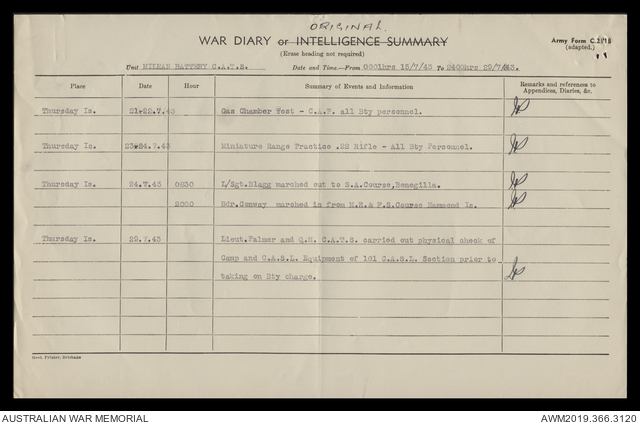 ORIGINAL.
WAR DIARY or INTELLIGENCE SUMMARY
(Erase heading not required)
Army Form C.2118
(adapted.)
Unit MILMAN BATTERY C.A.T.S. Date and Time—From 0001hrs 15/7/43 To 2400hrs 29/7/43.
Place Date Hour Summary of Events and Information Remarks and references to Appendices, Diaries, &c.
Thursday Is. 21-22.7.43 Gas Chamber Test - C.A.P. all Bty personnel.
Thursday Is. 23-24.7.43 Miniature Range Practice .22 Rifle - All Bty Personnel.
Thursday Is. 24.7.43 0830 L/Sgt.Blagg marched out to S.A.Course, Bonegilla.
2000 Bdr.Conway marched in from M.R.& F.S.Course Hammond Is.
Thursday Is. 29.7.43 Lieut.Palmer and Q.M. C.A.T.S. carried out physical check of
Camp and C.A.S.L. Equipment of 101 C.A.S.L. Section prior to
taking on Bty charge.
Govt. Printer, Brisbane
AUSTRALIAN WAR MEMORIAL AWM2019.366.3120